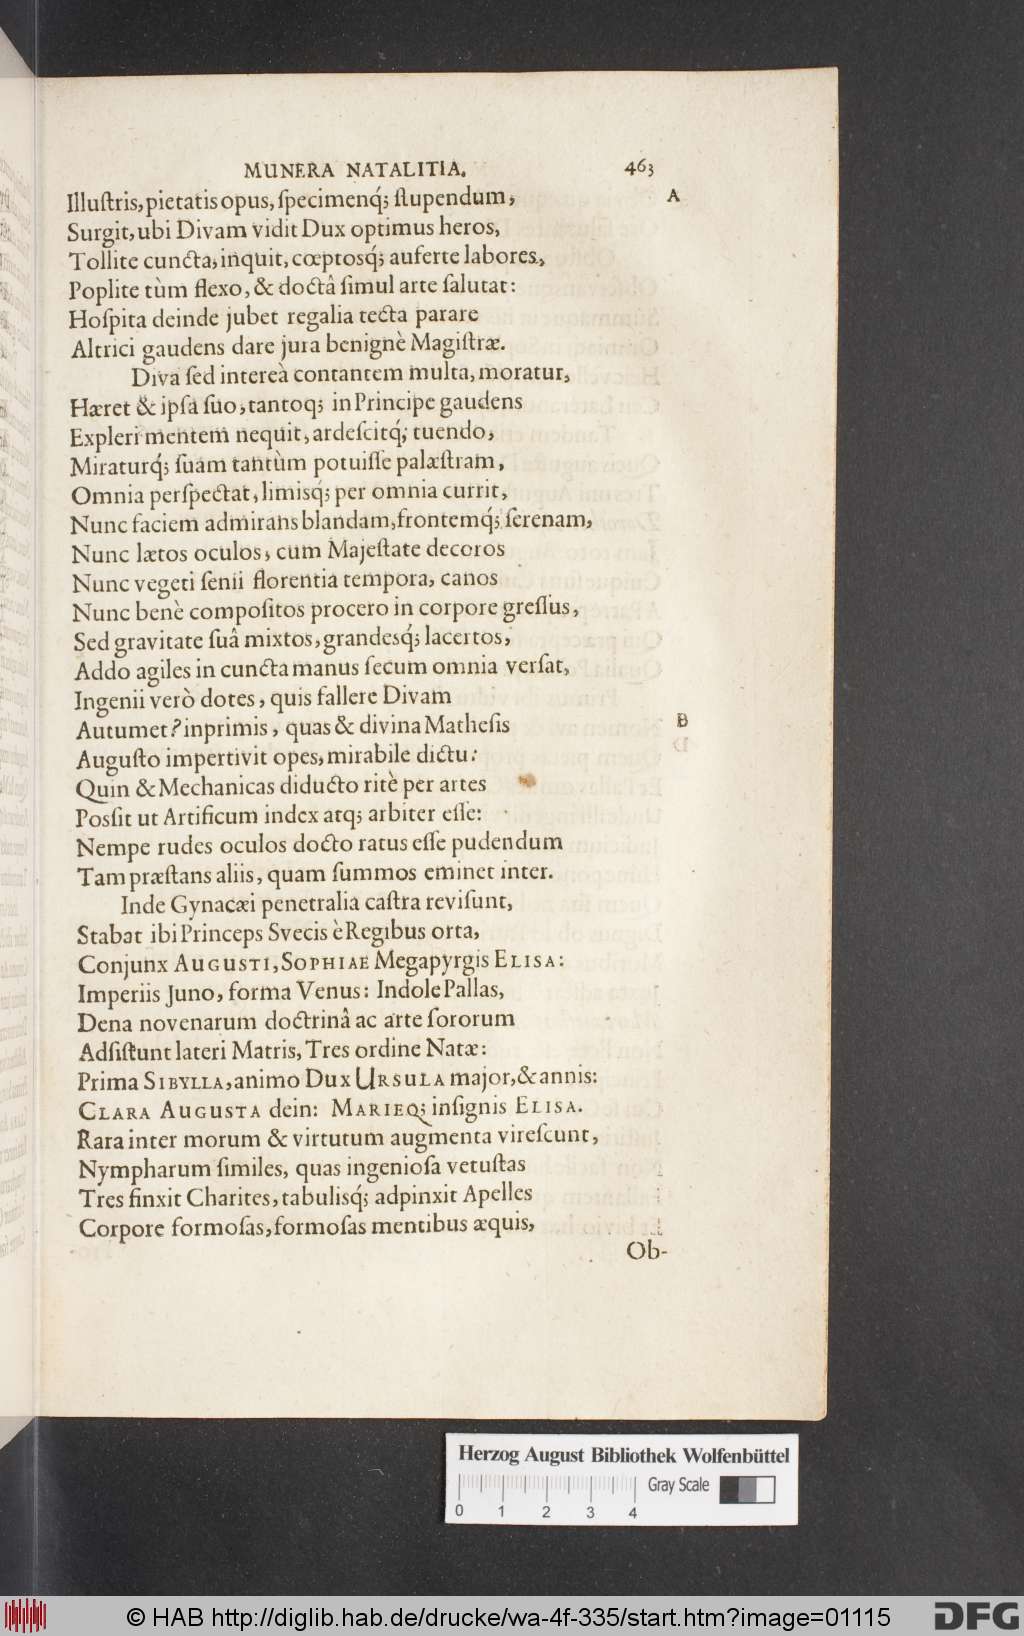 MUNERA NATALITIA. 463
Illuſtris, pietatis opus, ſpecimenq́; ſtupendum, A
Surgit, ubi Divam vidit Dux optimus heros,
Tollite cuncta, inquit, cœptosq́; auferte labores,
Poplite tùm flexo, & doctâ ſimul arte ſalutat:
Hoſpita deinde jubet regalia tecta parare
Altrici gaudens dare jura benignè Magiſtræ.
Diva ſed intereà contantem multa, moratur,
Hæret & ipſa ſuo, tantoq; in Principe gaudens
Expleri mentem nequit, ardeſcitq́; tuendo,
Miraturq́; ſuam tantùm potuiſſe palæſtram,
Omnia perſpectat, limisq́; per omnia currit,
Nunc faciem admirans blandam, frontemq́; ſerenam,
Nunc lætos oculos, cum Majeſtate decoros
Nunc vegeti ſenii florentia tempora, canos
Nunc benè compoſitos procero in corpore greſſus,
Sed gravitate ſuâ mixtos, grandesq́; lacertos,
Addo agiles in cuncta manus ſecum omnia verſat,
Ingenii verò dotes, quis fallere Divam
Autumet? inprimis, quas & divina Matheſis B
Auguſto impertivit opes, mirabile dictu:
Quin & Mechanicas diducto ritè per artes
Poſſit ut Artificum index atq; arbiter eſſe:
Nempe rudes oculos docto ratus eſſe pudendum
Tam præſtans aliis, quam ſummos eminet inter.
Inde Gynacæi penetralia caſtra reviſunt,
Stabat ibi Princeps Svecis è Regibus orta,
Conjunx AUGUSTI, SOPHIAE Megapyrgis ELISA:
Imperiis Juno, forma Venus: Indole Pallas,
Dena novenarum doctrinâ ac arte ſororum
Adſiſtunt lateri Matris, Tres ordine Natæ:
Prima SIBYLLA, animo Dux URSULA major, & annis:
CLARA AUGUSTA dein: MARIEQ; inſignis ELISA.
Rara inter morum & virtutum augmenta vireſcunt,
Nympharum ſimiles, quas ingenioſa vetuſtas
Tres finxit Charites, tabulisq́; adpinxit Apelles
Corpore formoſas, formoſas mentibus æquis,
Ob-
Herzog August Bibliothek Wolfenbüttel
Gray Scale
0 1 2 3 4
© HAB http://diglib.hab.de/drucke/wa-4f-335/start.htm?image=01115
DFG